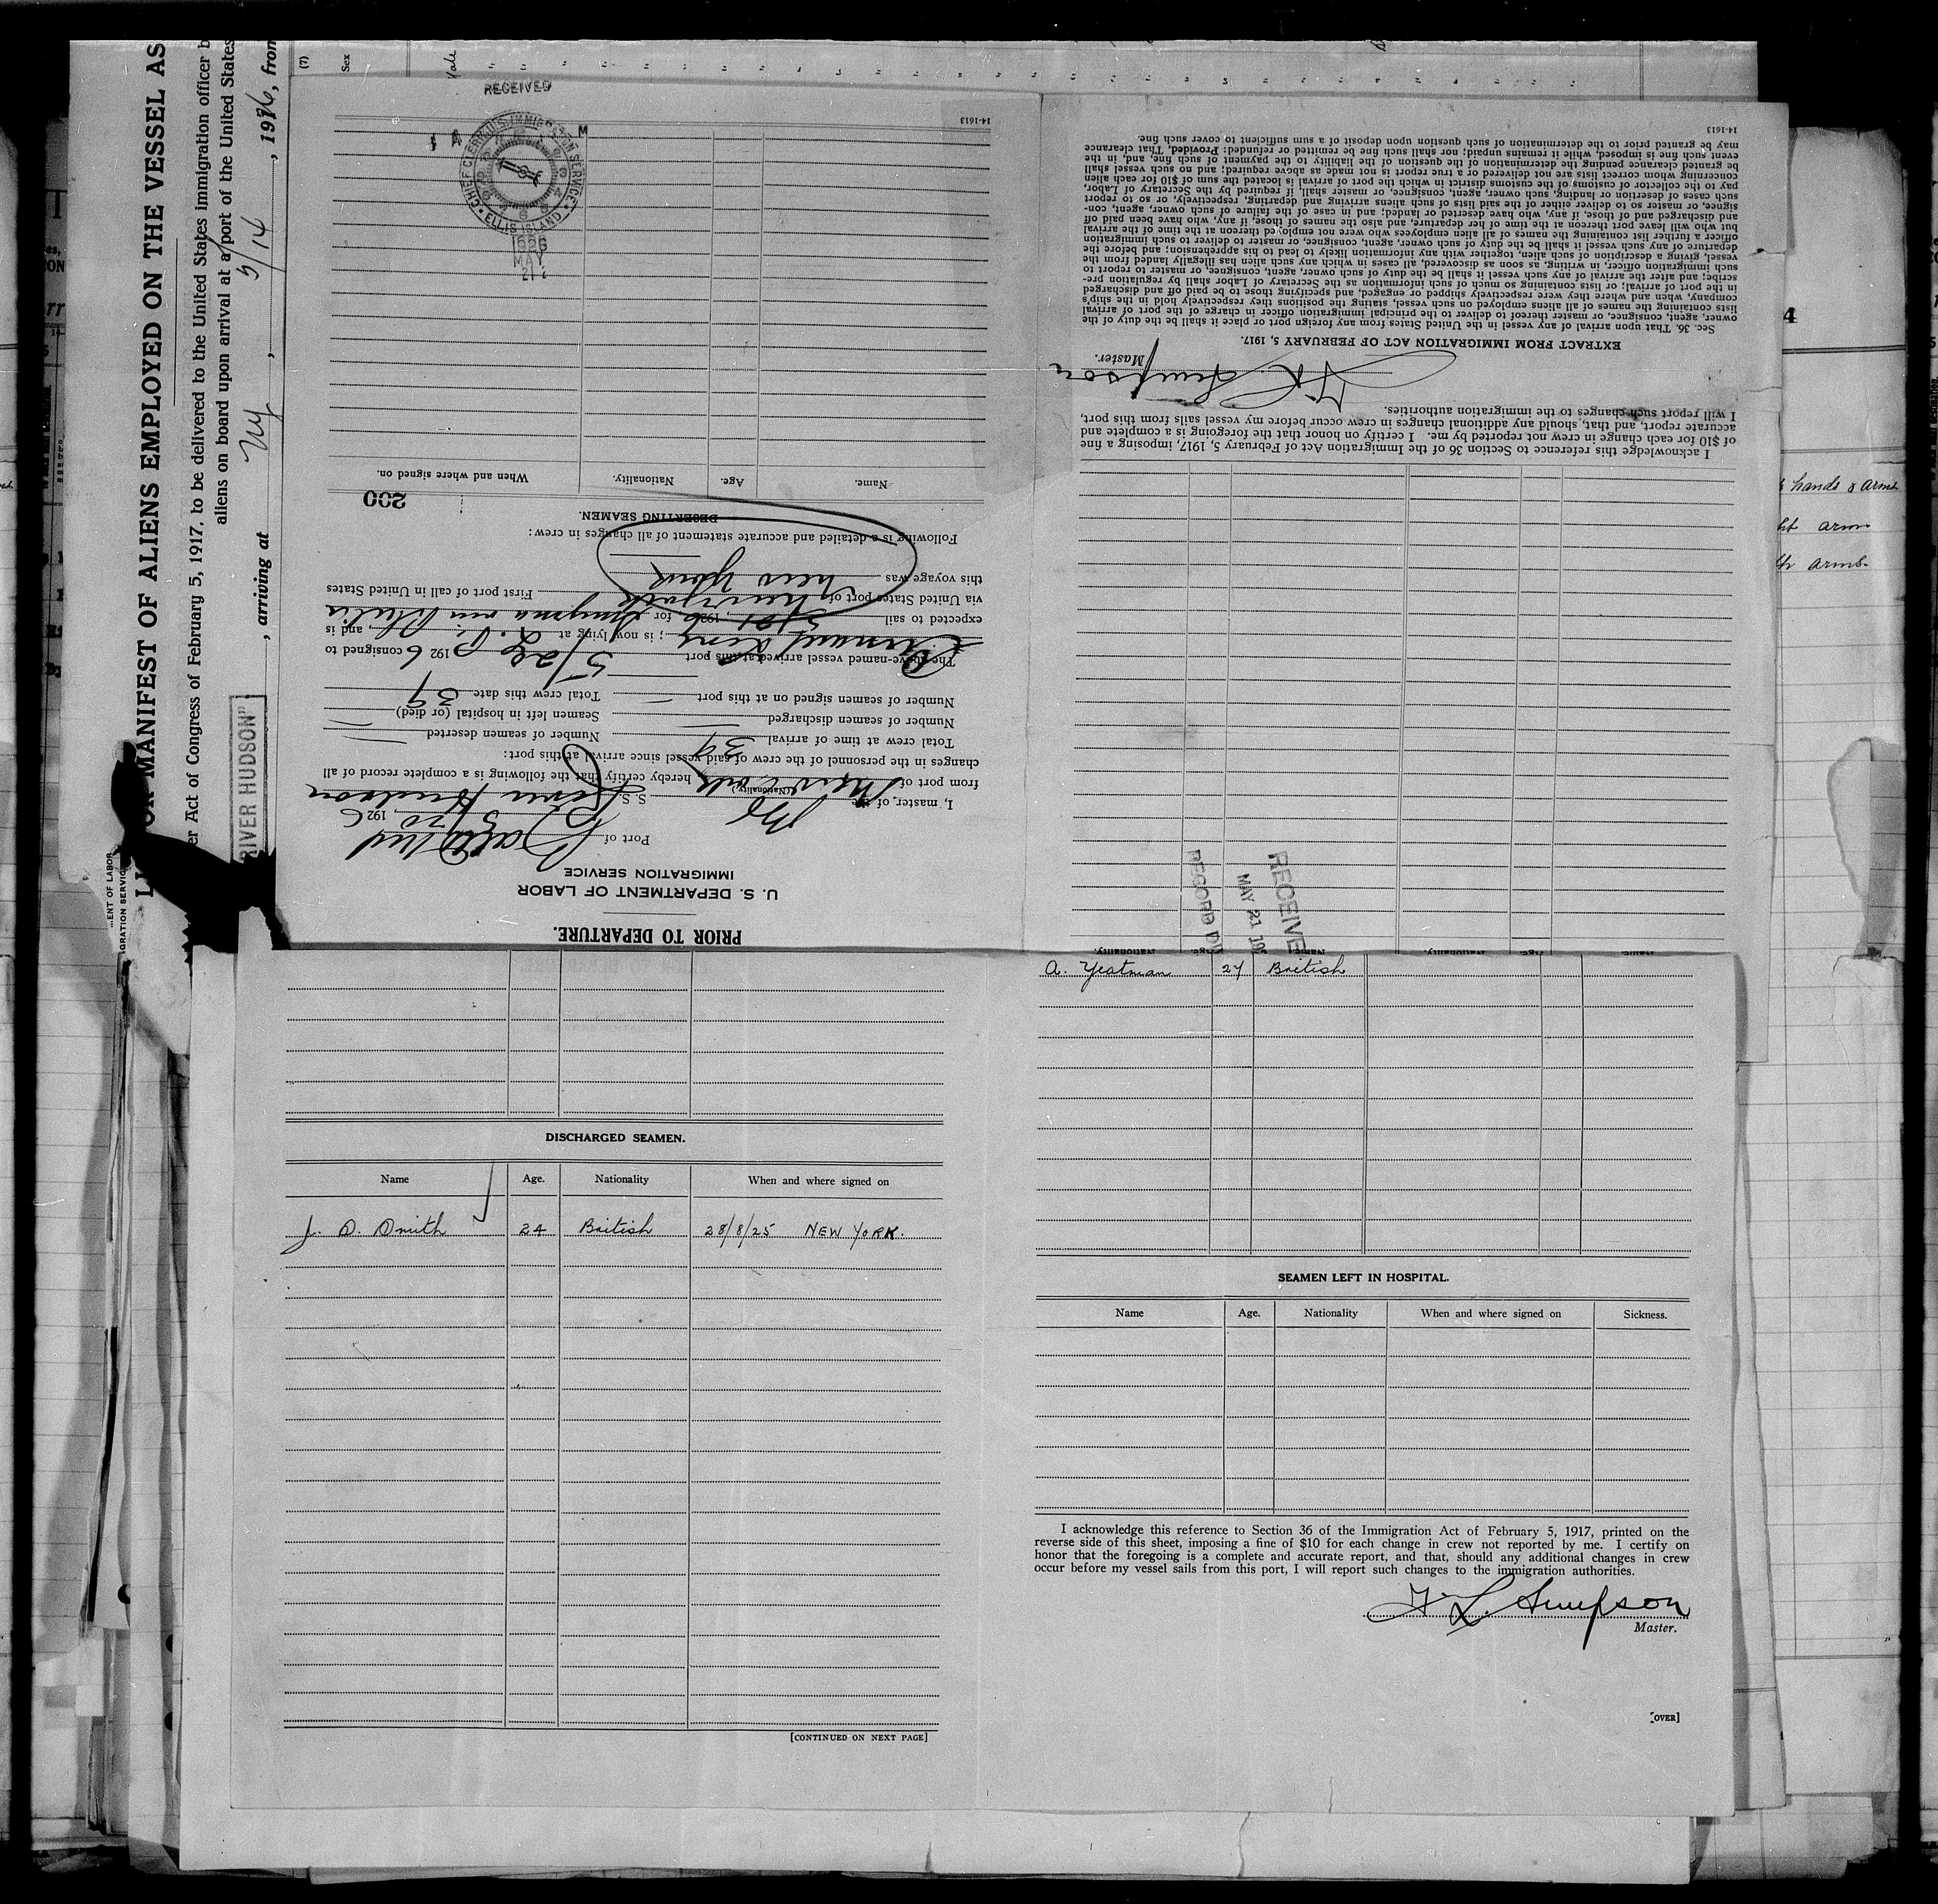 LIST OR MANIFEST OF ALIENS EMPLOYED ON THE VESSEL AS
er Act of Congress of February 5, 1917, to be delivered to the United States immigration officer b
aliens on board upon arrival at a port of the United States
RIVER HUDSON"
, arriving at NY, 5/14, 1926, from
ENT OF LABOR
GRATION SERVIC
(7)
Sex
PRIOR TO DEPARTURE.
U. S. DEPARTMENT OF LABOR
IMMIGRATION SERVICE
Port of Balto Md
5/20, 1926
I, master, of the (Nationality) S. S. River Hudson
from port of New York, hereby certify that the following is a complete record of all
changes in the personnel of the crew of said vessel since arrival at this port:
Total crew at time of arrival 39 Number of seamen deserted
Number of seamen discharged Seamen left in hospital (or died)
Number of seamen signed on at this port Total crew this date 39
The above-named vessel arrived at this port 5/20 1926 consigned to
; is now lying at and is
expected to sail 5/21, 1926, for Smyrna via Phila
via United States port of New York First port of call in United States
this voyage was New York
Following is a detailed and accurate statement of all changes in crew:
DESERTING SEAMEN.
200
Name. Age. Nationality. When and where signed on.
RECEIVED
CHIEF CLERK U.S. IMMIGRATION SERVICE
ELLIS ISLAND
1926
MAY
21
14-1613
Name. Age. Nationality. Name. Age. Nationality.
RECEIVE
MAY 21 19
RECORD DI
I acknowledge this reference to Section 36 of the Immigration Act of February 5, 1917, imposing a fine
of $10 for each change in crew not reported by me. I certify on honor that the foregoing is a complete and
accurate report, and that, should any additional changes in crew occur before my vessel sails from this port,
I will report such changes to the immigration authorities.
Simpson
Master.
EXTRACT FROM IMMIGRATION ACT OF FEBRUARY 5, 1917.
Sec. 36. That upon arrival of any vessel in the United States from any foreign port or place it shall be the duty of the
owner, agent, consignee, or master thereof to deliver to the principal immigration officer in charge of the port of arrival
lists containing the names of all aliens employed on such vessel, stating the positions they respectively hold in the ship's
company, when and where they were respectively shipped or engaged, and specifying those to be paid off and discharged
in the port of arrival; or lists containing so much of such information as the Secretary of Labor shall by regulation pre-
scribe; and after the arrival of any such vessel it shall be the duty of such owner, agent, consignee, or master to report to
such immigration officer, in writing, as soon as discovered, all cases in which any such alien has illegally landed from the
vessel, giving a description of such alien, together with any information likely to lead to his apprehension; and before the
departure of any such vessel it shall be the duty of such owner, agent, consignee, or master to deliver to such immigration
officer a further list containing the names of all alien employees who were not employed thereon at the time of the arrival
but who will leave port thereon at the time of her departure, and also the names of those, if any, who have been paid off
and discharged and of those, if any, who have deserted or landed; and in case of the failure of such owner, agent, con-
signee, or master so to deliver either of the said lists of such aliens arriving and departing, respectively, or so to report
such cases of desertion or landing, such owner, agent, consignee, or master shall, if required by the Secretary of Labor,
pay to the collector of customs of the customs district in which the port of arrival is located the sum of $10 for each alien
concerning whom correct lists are not delivered or a true report is not made as above required; and no such vessel shall
be granted clearance pending the determination of the question of the liability to the payment of such fine, and, in the
event such fine is imposed, while it remains unpaid; nor shall such fine be remitted or refunded: Provided, That clearance
may be granted prior to the determination of such question upon deposit of a sum sufficient to cover such fine.
14-1613
4
hands & arms
arm
arms.
DISCHARGED SEAMEN.
Name Age. Nationality When and where signed on
J. O. Smith 24 British 28/8/25 NEW YORK.
[CONTINUED ON NEXT PAGE]
A. Yeatman 27 British
SEAMEN LEFT IN HOSPITAL.
Name Age. Nationality When and where signed on Sickness.
I acknowledge this reference to Section 36 of the Immigration Act of February 5, 1917, printed on the
reverse side of this sheet, imposing a fine of $10 for each change in crew not reported by me. I certify on
honor that the foregoing is a complete and accurate report, and that, should any additional changes in crew
occur before my vessel sails from this port, I will report such changes to the immigration authorities.
Simpson
Master.
[OVER]